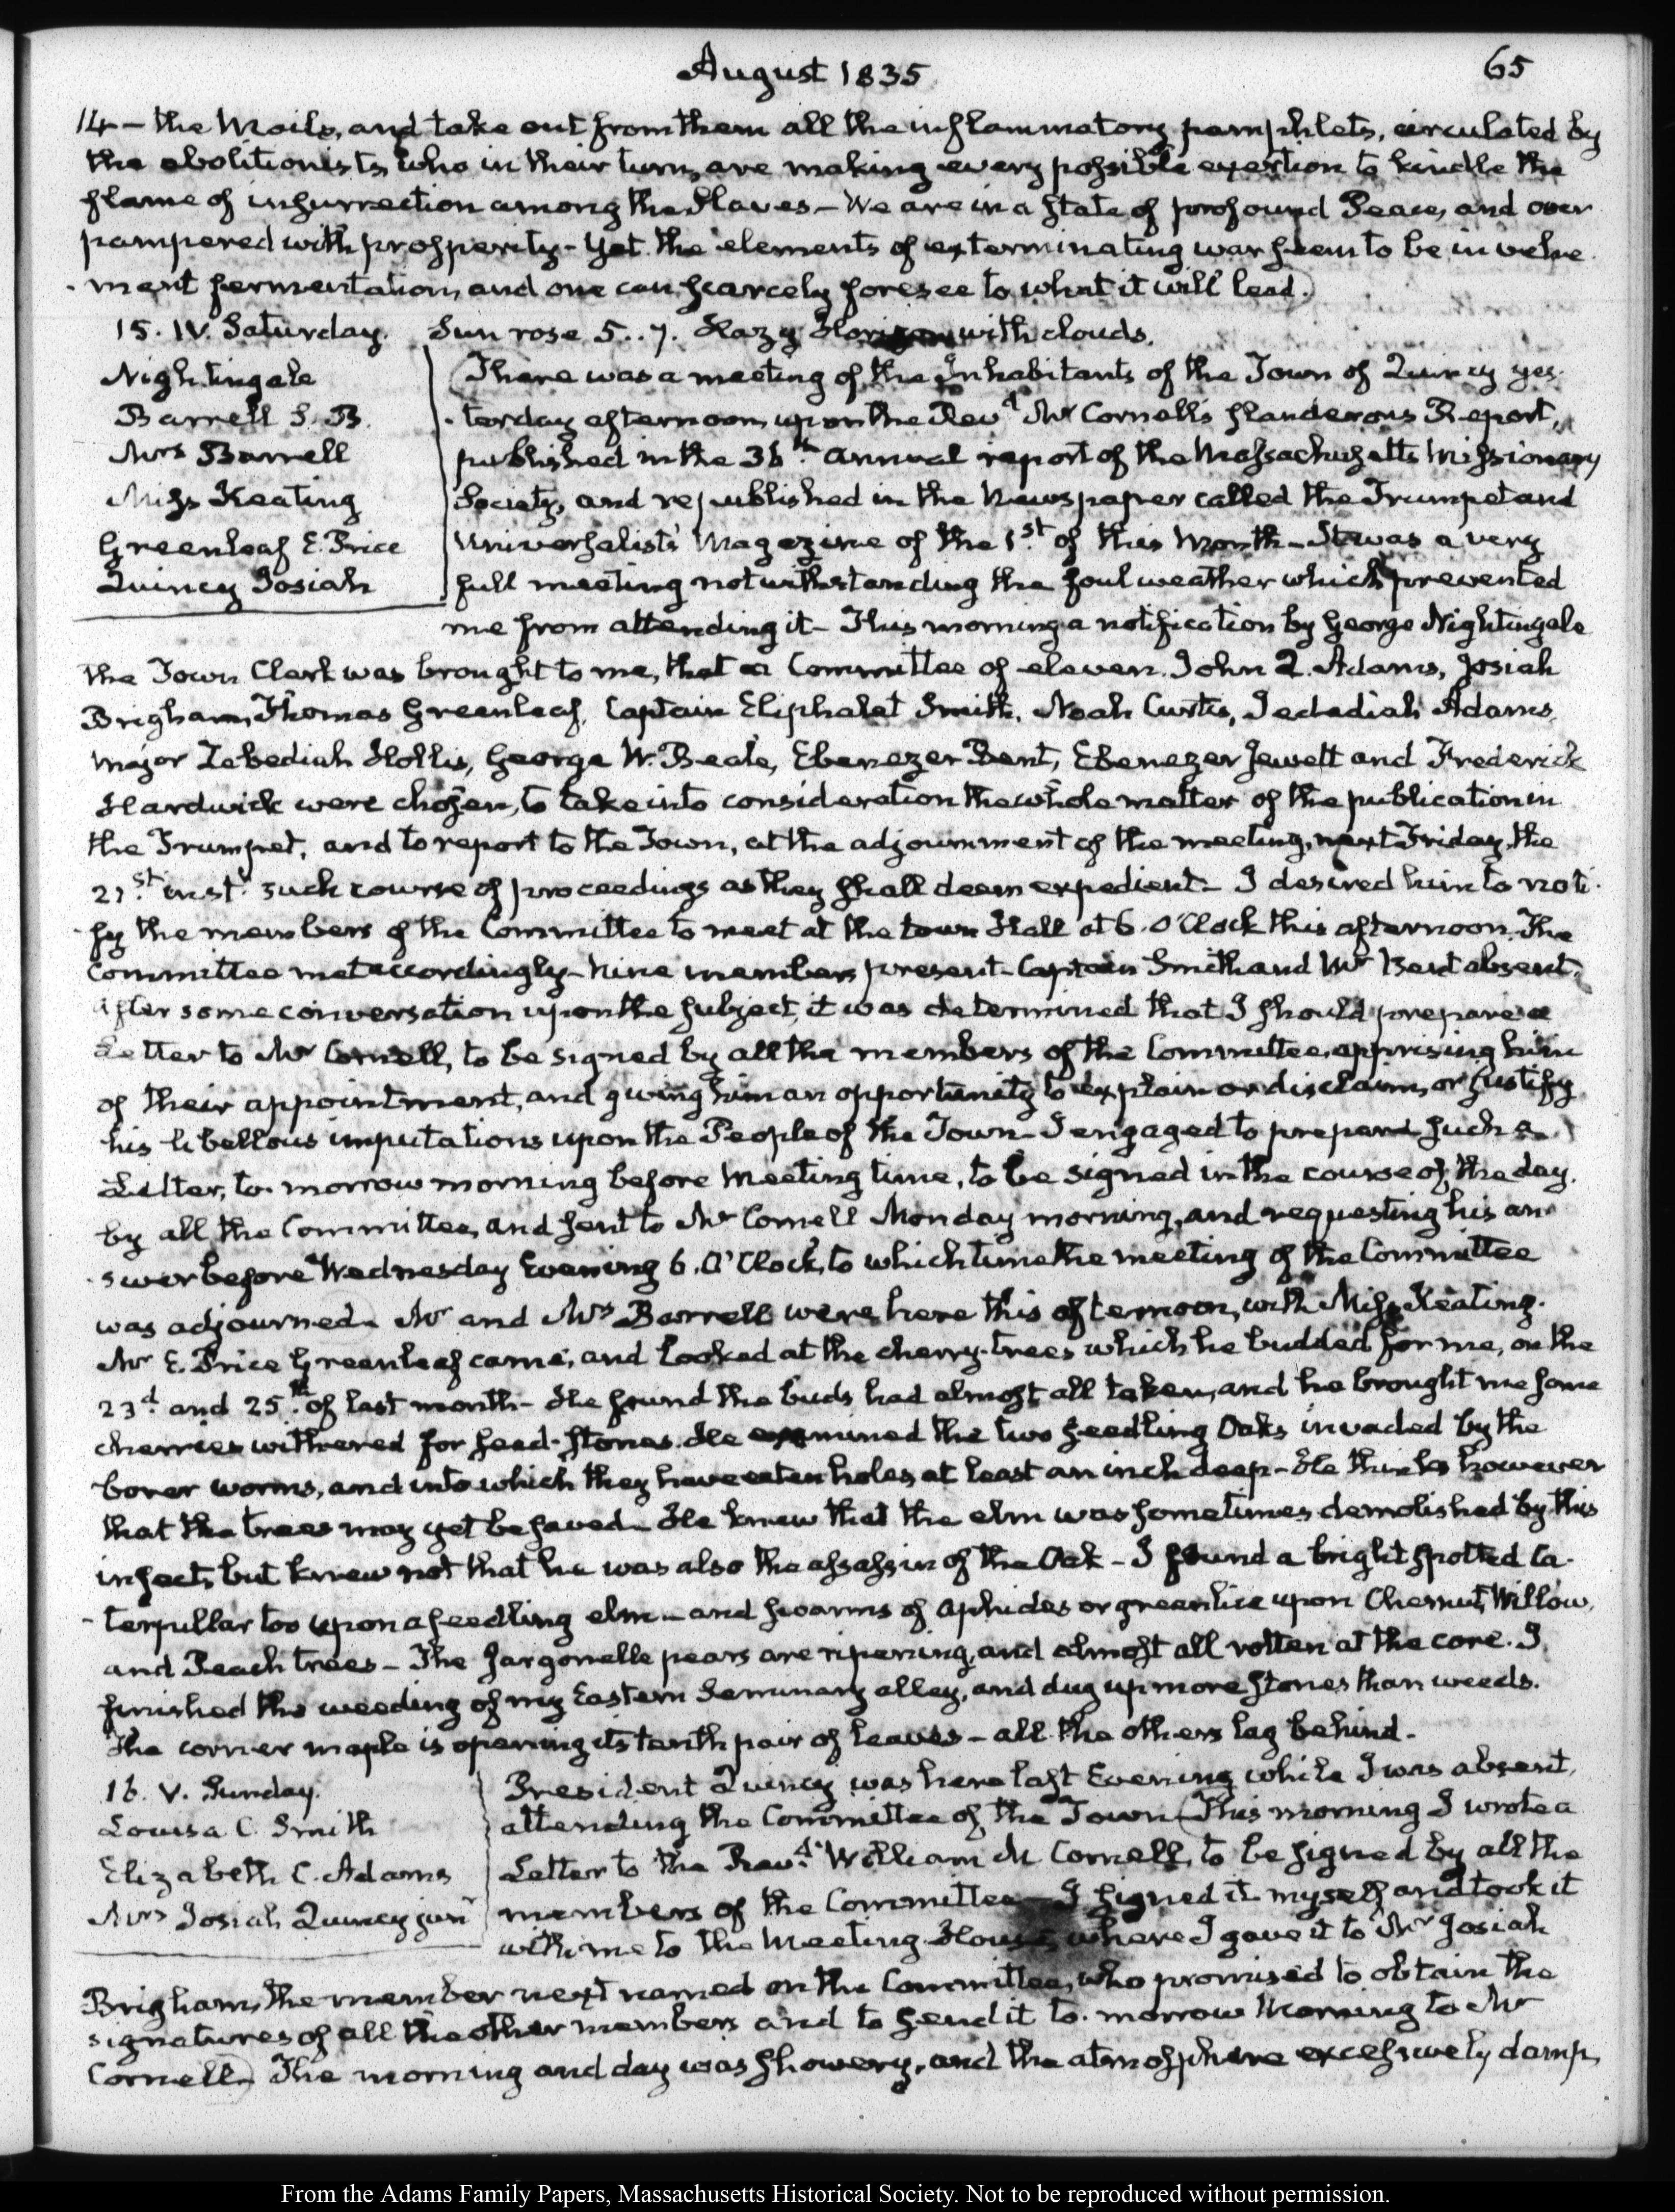 August 1835
65
14 – the Mails, and take out from them all the inflammatory pamphlets, circulated by
the abolitionists, who in their turn, are making every possible exertion to kindle the
flame of insurrection among the Slaves – We are in a state of profound Peace, and over
pampered with prosperity – Yet the elements of exterminating war seem to be in vehe-
-ment fermentation, and one can scarcely foresee to what it will lead.
15. IV. Saturday. Sun rose 5..7. Hazy Horizon with clouds.
Nightingale
Barrell S. B.
Mrs Barrell
Miss Keating
Greenleaf E. Price
Quincy Josiah
There was a meeting of the Inhabitants of the Town of Quincy yes-
-terday afternoon, upon the Revd. Mr Cornell's slanderous Report,
published in the 36th annual report of the Massachusetts Missionary
Society, and republished in the Newspaper called the Trumpet and
Universalists' Magazine of the 1st of this Month – It was a very
full meeting notwithstanding the foul weather which prevented
me from attending it – This morning a notification by George Nightingale
the Town Clerk was brought to me, that a Committee of eleven. John Q. Adams, Josiah
Brigham, Thomas Greenleaf, Captain Eliphalet Smith, Noah Curtis, Jedediah Adams,
Major Lebediah Hollis, George W. Beale, Ebenezer Bent, Ebenezer Jewett and Frederick
Hardwick were chosen, to take into consideration the whole matter of the publication in
the Trumpet, and to report to the Town, at the adjournment of the meeting, next Friday, the
21st inst. such course of proceedings as they shall deem expedient – I desired him to noti-
-fy the members of the Committee to meet at the town Hall at 6. O'Clock this afternoon. The
Committee met accordingly – nine members present – Captain Smith and Mr Bent absent.
After some conversation upon the subject, it was determined that I should prepare a
Letter to Mr Cornell, to be signed by all the members of the Committee, apprising him
of their appointment, and giving him an opportunity to explain or disclaim, or justify
his libellous imputations upon the People of the Town – I engaged to prepare such a
Letter, to-morrow morning before Meeting time, to be signed in the course of the day.
by all the Committee, and sent to Mr Cornell Monday morning, and requesting his an-
-swer before Wednesday Evening 6. O'Clock, to which time the meeting of the Committee
was adjourned – Mr and Mrs Barrell were here this afternoon, with Miss Keating.
Mr E. Price Greenleaf came, and looked at the cherry-trees which he budded for me, on the
23d. and 25th. of last month – He found the buds had almost all taken, and he brought me some
cherries withered for seed-stones. He examined the two seedling Oaks invaded by the
borer worms, and into which they have eaten holes, at least an inch deep – He thinks however
that the trees may yet be saved – He knew that the elm was sometimes demolished by this
insect, but knew not that he was also the assassin of the Oak – I found a bright spotted ca-
-terpillar too upon a seedling elm – and swarms of aphides or green lice upon Chesnut, Willow,
and Peach trees – The Jargonelle pears are ripening, and almost all rotten at the core. I
finished the weeding of my Eastern Seminary alley, and dug up more stones than weeds.
The corner maple is opening its tenth pair of leaves – all the others lag behind.
16. V. Sunday.
Louisa C. Smith
Elizabeth C. Adams
Mrs Josiah Quincy junr
President Quincy was here last Evening while I was absent,
attending the Committee of the Town (This morning I wrote a
Letter to the Revd. William M Cornell, to be signed by all the
members of the Committee – I signed it myself and took it
with me to the Meeting House, where I gave it to Mr Josiah
Brigham, the member next named on the Committee, who promised to obtain the
signatures of all the other members and to send it to-morrow Morning to Mr
Cornell –) The morning and day was showery, and the atmosphere excessively damp,
From the Adams Family Papers, Massachusetts Historical Society. Not to be reproduced without permission.